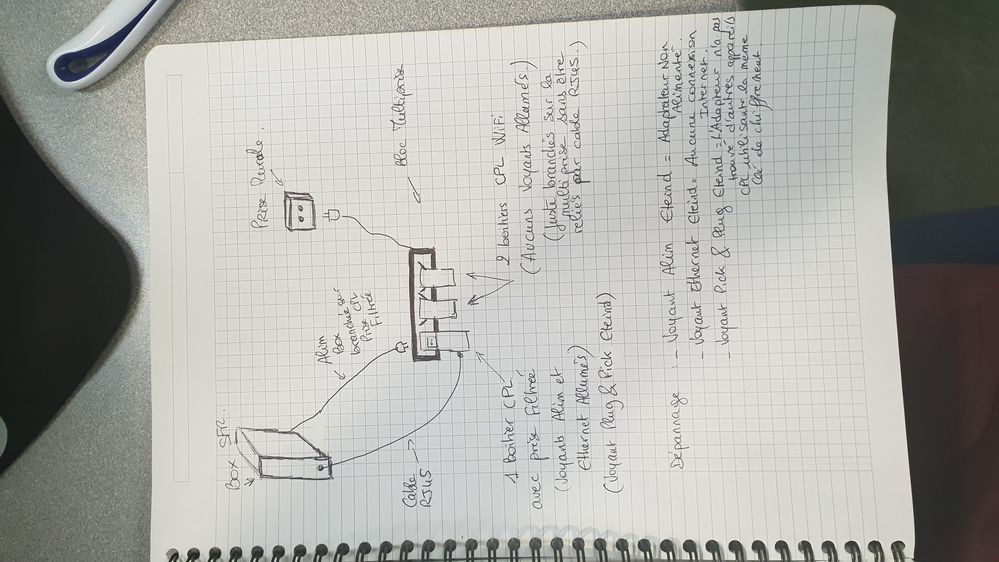 Box SFR.
Prise Murale.
Alim
Box
branchée sur
Prise CPL
Filtrée
Bloc Multiprise
Cable
RJ45
1 Boitier CPL
avec prise Filtrée
(Voyants Alim et
Ethernet Allumés)
(Voyant Plug & Pick Eteind)
2 boitiers CPL WiFi
(Aucuns Voyants Allumés.)
(Juste branchés sur la
multiprise sans être
reliés par cable RJ45.)
Dépannage : - Voyant Alim Eteind = Adaptateur Non
Alimenté.
- Voyant Ethernet Eteind = Aucune connexion
Internet.
- Voyant Pick & Plug Eteind = L'Adapteur n'a pas
trouvé d'autres appareils
CPL utilisante la même
Clé de chiffrement.